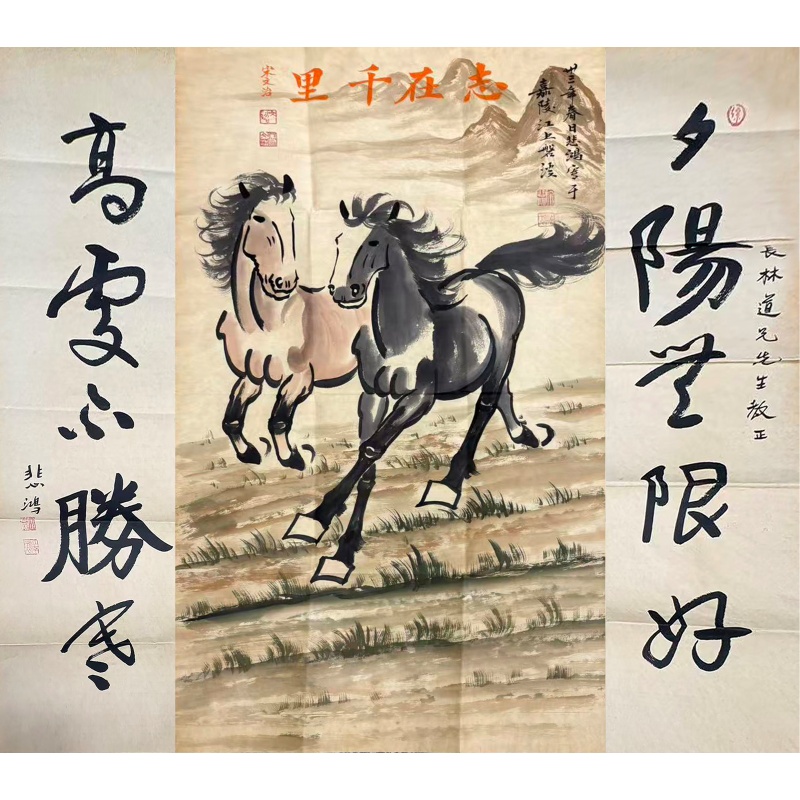 夕陽無限好
長林道兄先生教正
志在千里
卅三年春日悲鴻寫于
嘉陵江上磐溪
宋文治
高處不勝寒
悲鴻